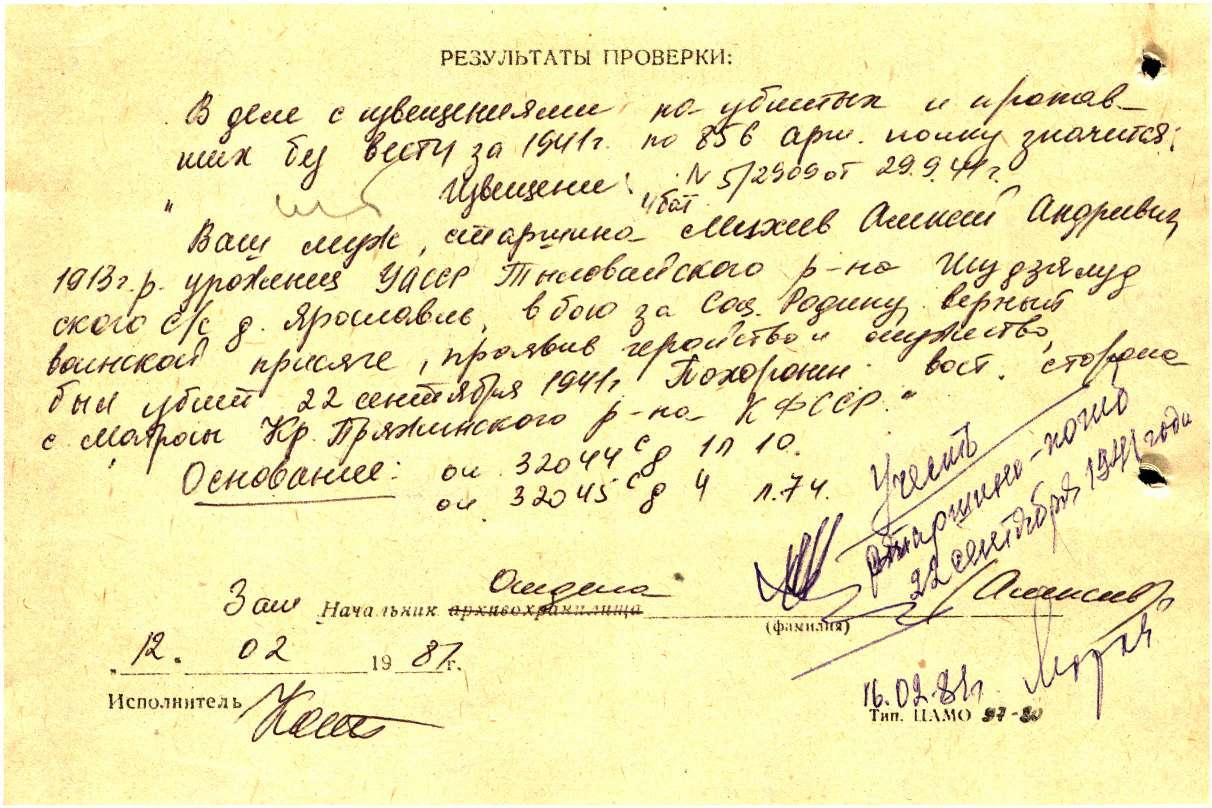 РЕЗУЛЬТАТЫ ПРОВЕРКИ:
В деле с извещениями на убитых и пропав-
ших без вести за 1941г. по 856 арт. полку значится:
" Извещение N 5/2909 от 29.9.41г.
4 бат
Ваш муж, старшина Михеев Алексей Андреевич
1913г.р. урожения УАССР Тыловайского р-на Шудзялуд
ского с/с д. Ярославль, в бою за Соц. Родину верный
воинской присяге, проявив геройство и мужество,
был убит 22 сентября 1941г. Похоронен вост. сторона
с. Матросы Кр. Пряжинского р-на КФССР."
Основание: оп. 32044с д 1 л 10.
оп. 32045с д 4 л. 74.
Учесть
старшина - погиб
22 сентября 1941 года
Зам Начальник архивохранилища
Отдела
Алексеев
(фамилия)
"12." 02 1981г.
Исполнитель
16.02.81г.
Тип. ЦАМО 97-80